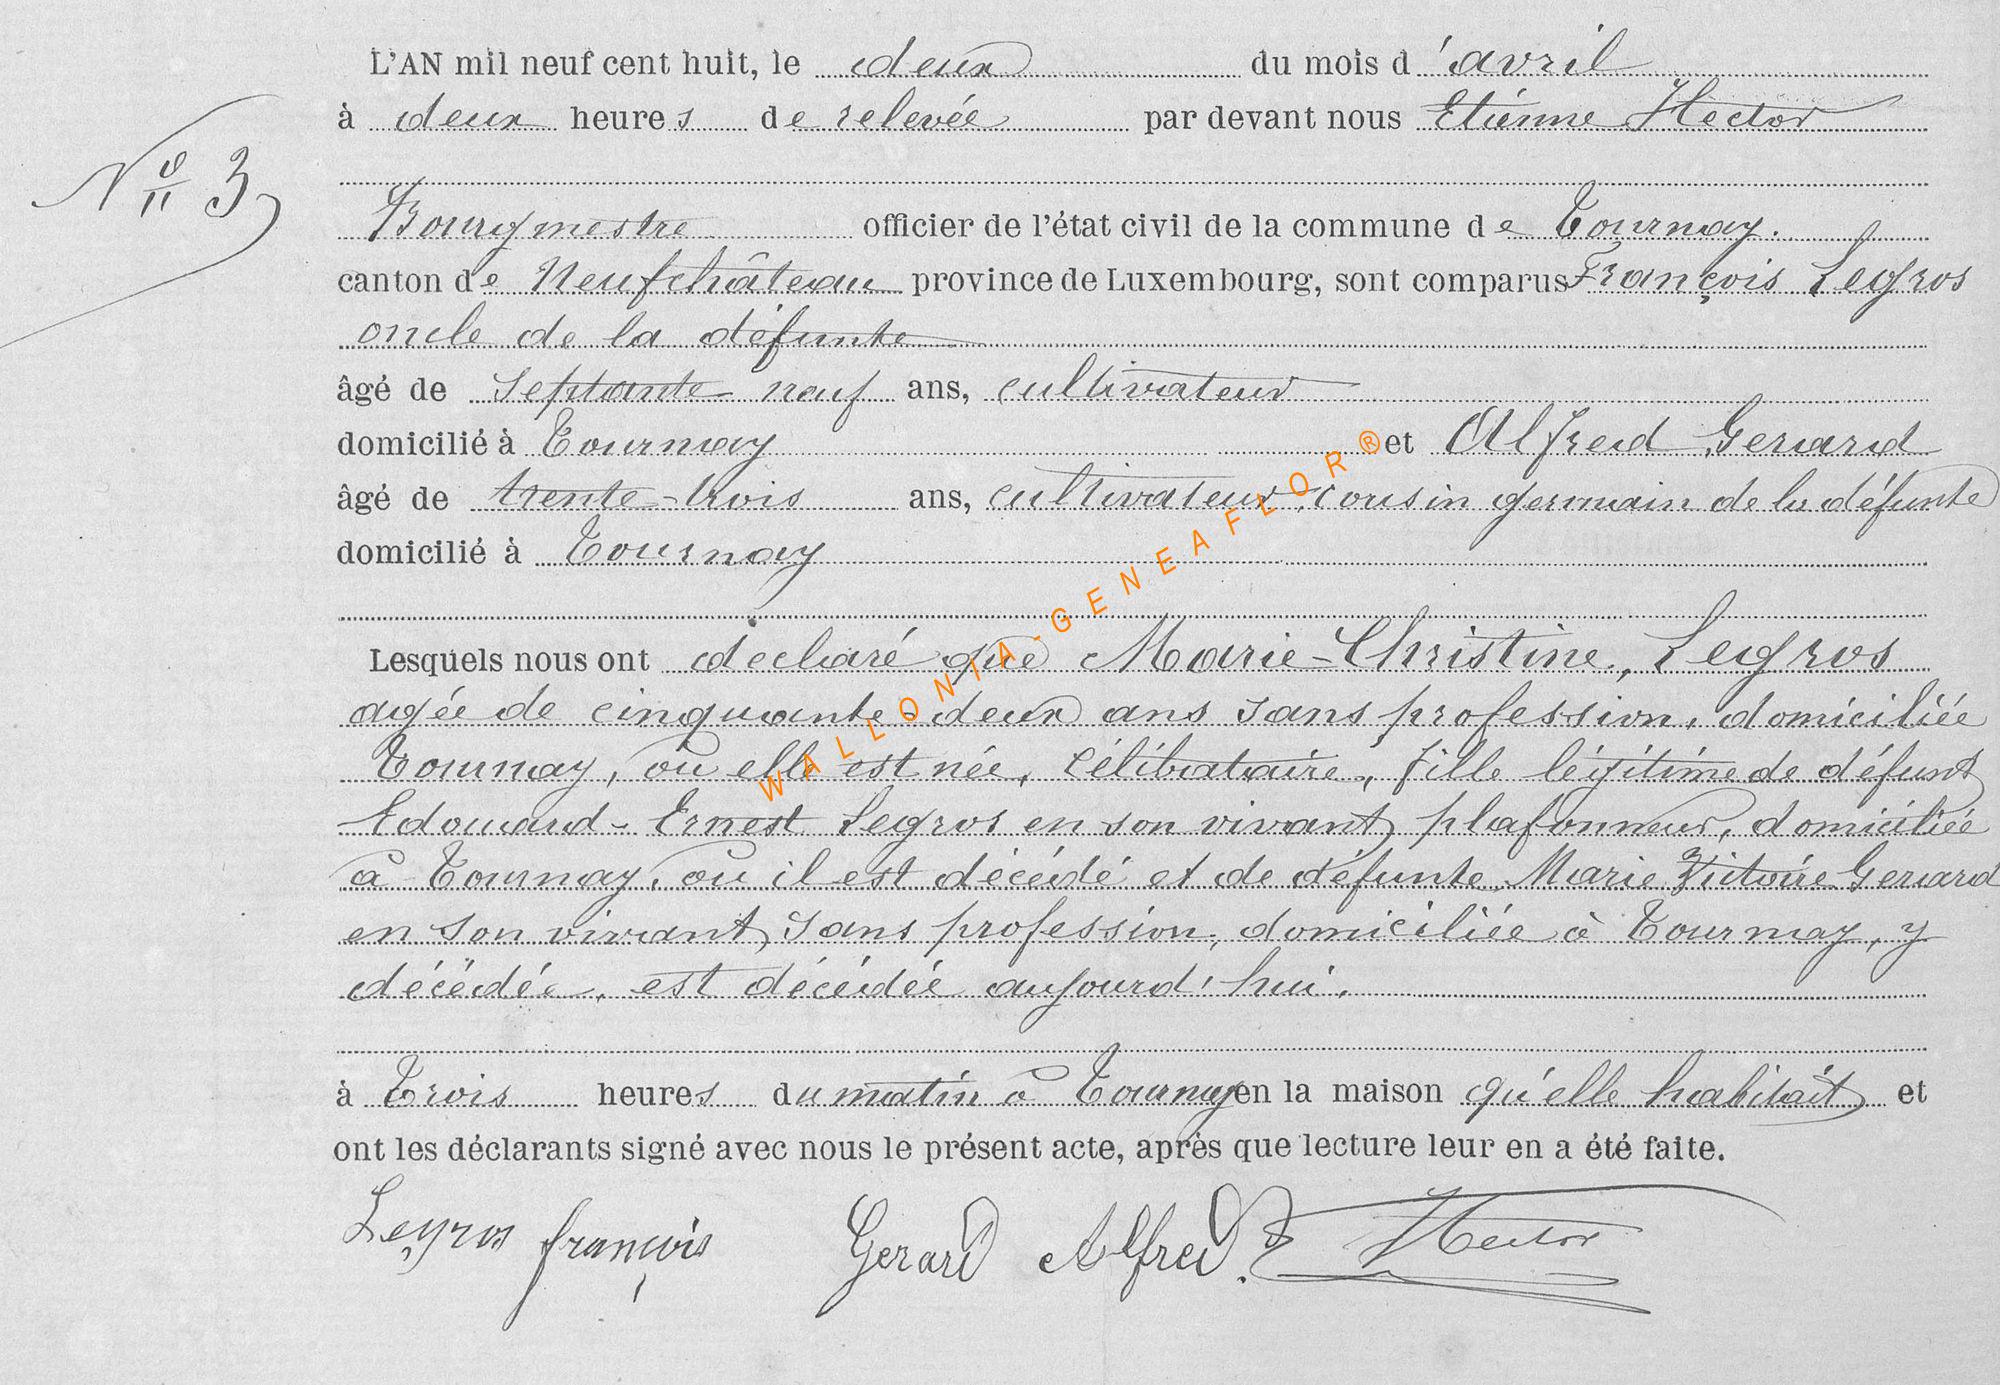 L'AN mil neuf cent huit, le deux du mois d'avril
à deux heures de relevée par devant nous Etienne Hector
Nº 3
Bourgmestre officier de l'état civil de la commune de Tournay.
canton de Neufchâteau province de Luxembourg, sont comparus François Legros
oncle de la défunte
âgé de septante neuf ans, cultivateur
domicilié à Tournay et Alfred Gerard
âgé de trente-trois ans, cultivateur, cousin germain de la défunte
domicilié à Tournay
Lesquels nous ont déclaré que Marie-Christine, Legros
agée de cinquante-deux ans sans profession, domiciliée
Tournay, où elle est née, célibataire, fille légitime de défunt
Edouard-Ernest Legros en son vivant plafonneur, domiciliée
à Tournay, où il est décédé et de défunte Marie Victoire Gerard
en son vivant, sans profession, domiciliée à Tournay, y
décédée, est décédée aujourd'hui.
à trois heures du matin à Tournay en la maison qu'elle habitait et
ont les déclarants signé avec nous le présent acte, après que lecture leur en a été faite.
Legros françois Gerard Alfred. E Hector
WALLONIA-GENEAFLOR®